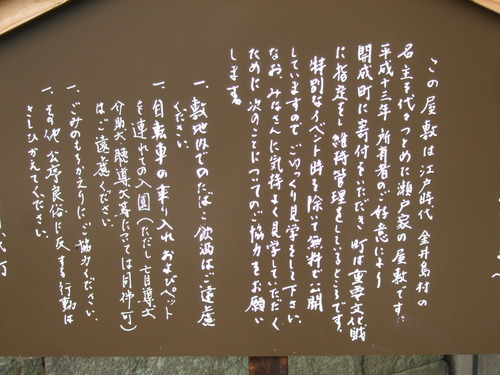 この屋敷は江戸時代 金井島村の
名主を代々つとめた瀬戸家の屋敷です。
平成十三年 所有者のご好意により
開成町に寄付をいただき 町は重要文化財
に指定をし 維持管理をしているところです。
特別なイベント時を除いて無料で公開
していますので ごゆっくり見学をして下さい。
なお、みなさんに気持よく見学していただく
ために 次のことについてのご協力をお願い
します。
一、敷地内でのたばこ 飲酒はご遠慮
ください。
一、自転車の乗り入れ およびペット
を連れての入園(ただし 盲導犬
介助犬 聴導犬等については同伴可)
はご遠慮ください。
一、ごみのもちかえりにご協力ください。
一、その他 公序良俗に反する行動は
さしひかえてください。